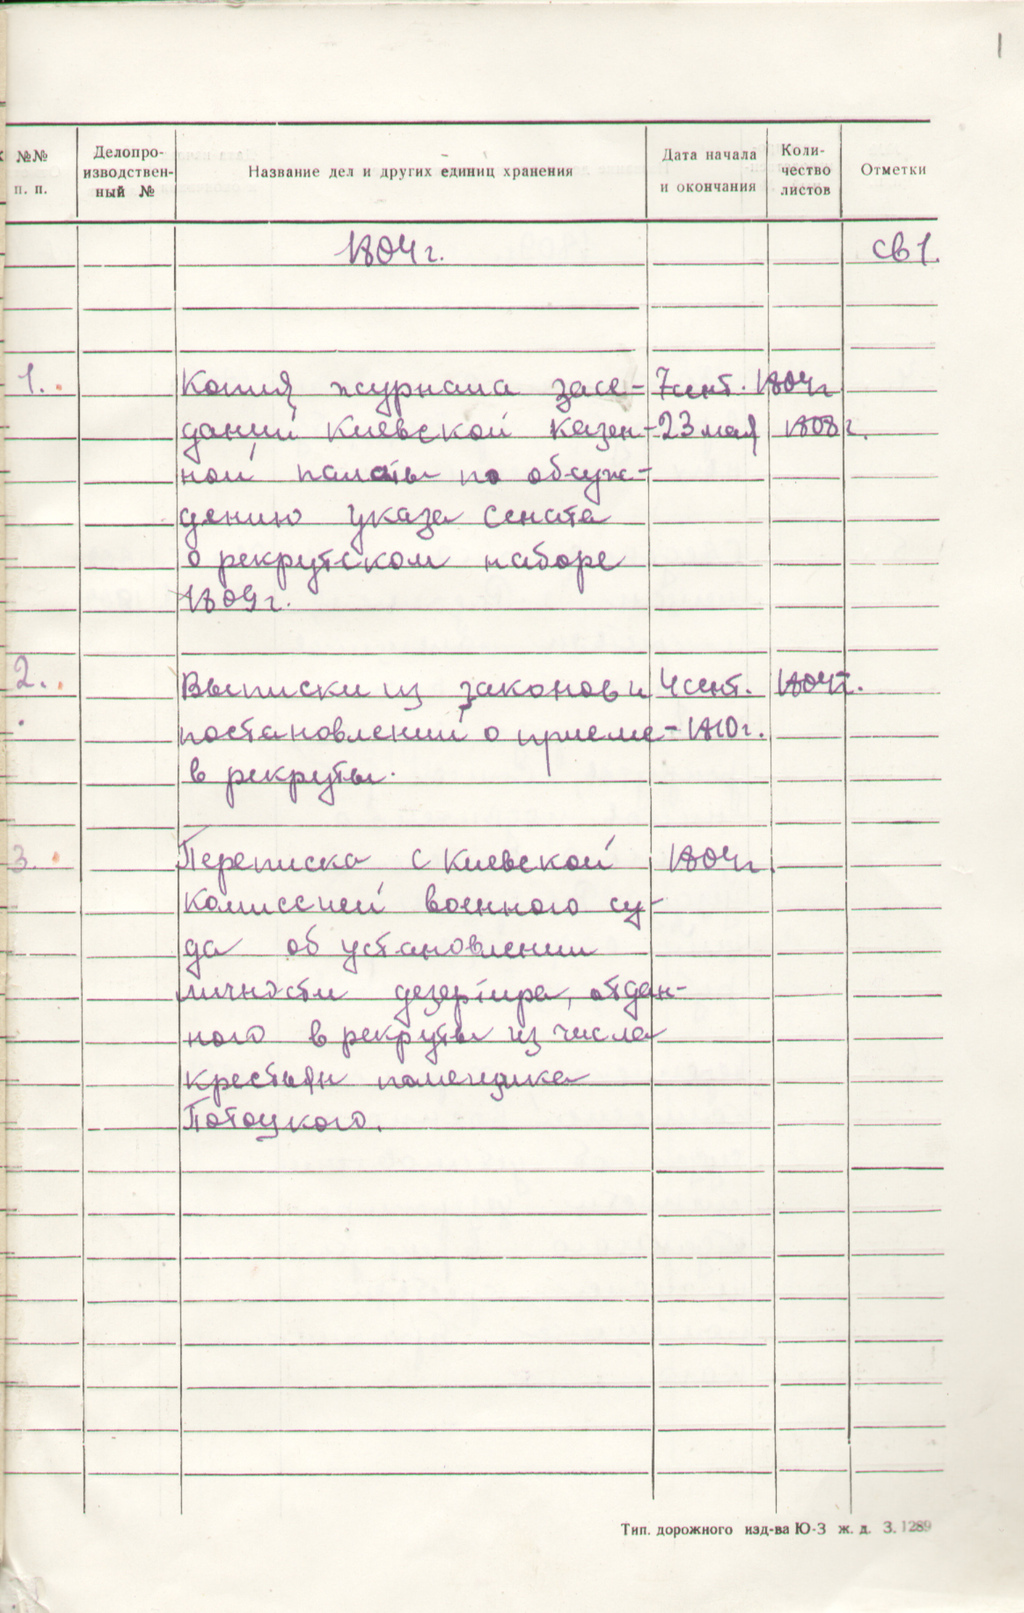 1
№№ п. п.
Делопро-
изводствен-
ный №
Название дел и других единиц хранения
Дата начала
и окончания
Коли-
чество
листов
Отметки
1804 г.
св 1.
1. Копия журнала засе- 7 сент. 1804 г
даний Киевской казен- -23 мая 1808 г.
ной палаты по обсуж-
дению указа Сената
о рекрутском наборе
1809 г.
2. Выписки из законов и 4 сент. 1804 г.
постановлений о приеме -1810 г.
в рекруты.
3. Переписка с Киевской 1804 г.
комиссией военного су-
да об установлении
личности дезертира, отдан-
ного в рекруты из числа
крестьян помещика
Потоцкого.
Тип. дорожного изд-ва Ю-З ж. д. З. 1289